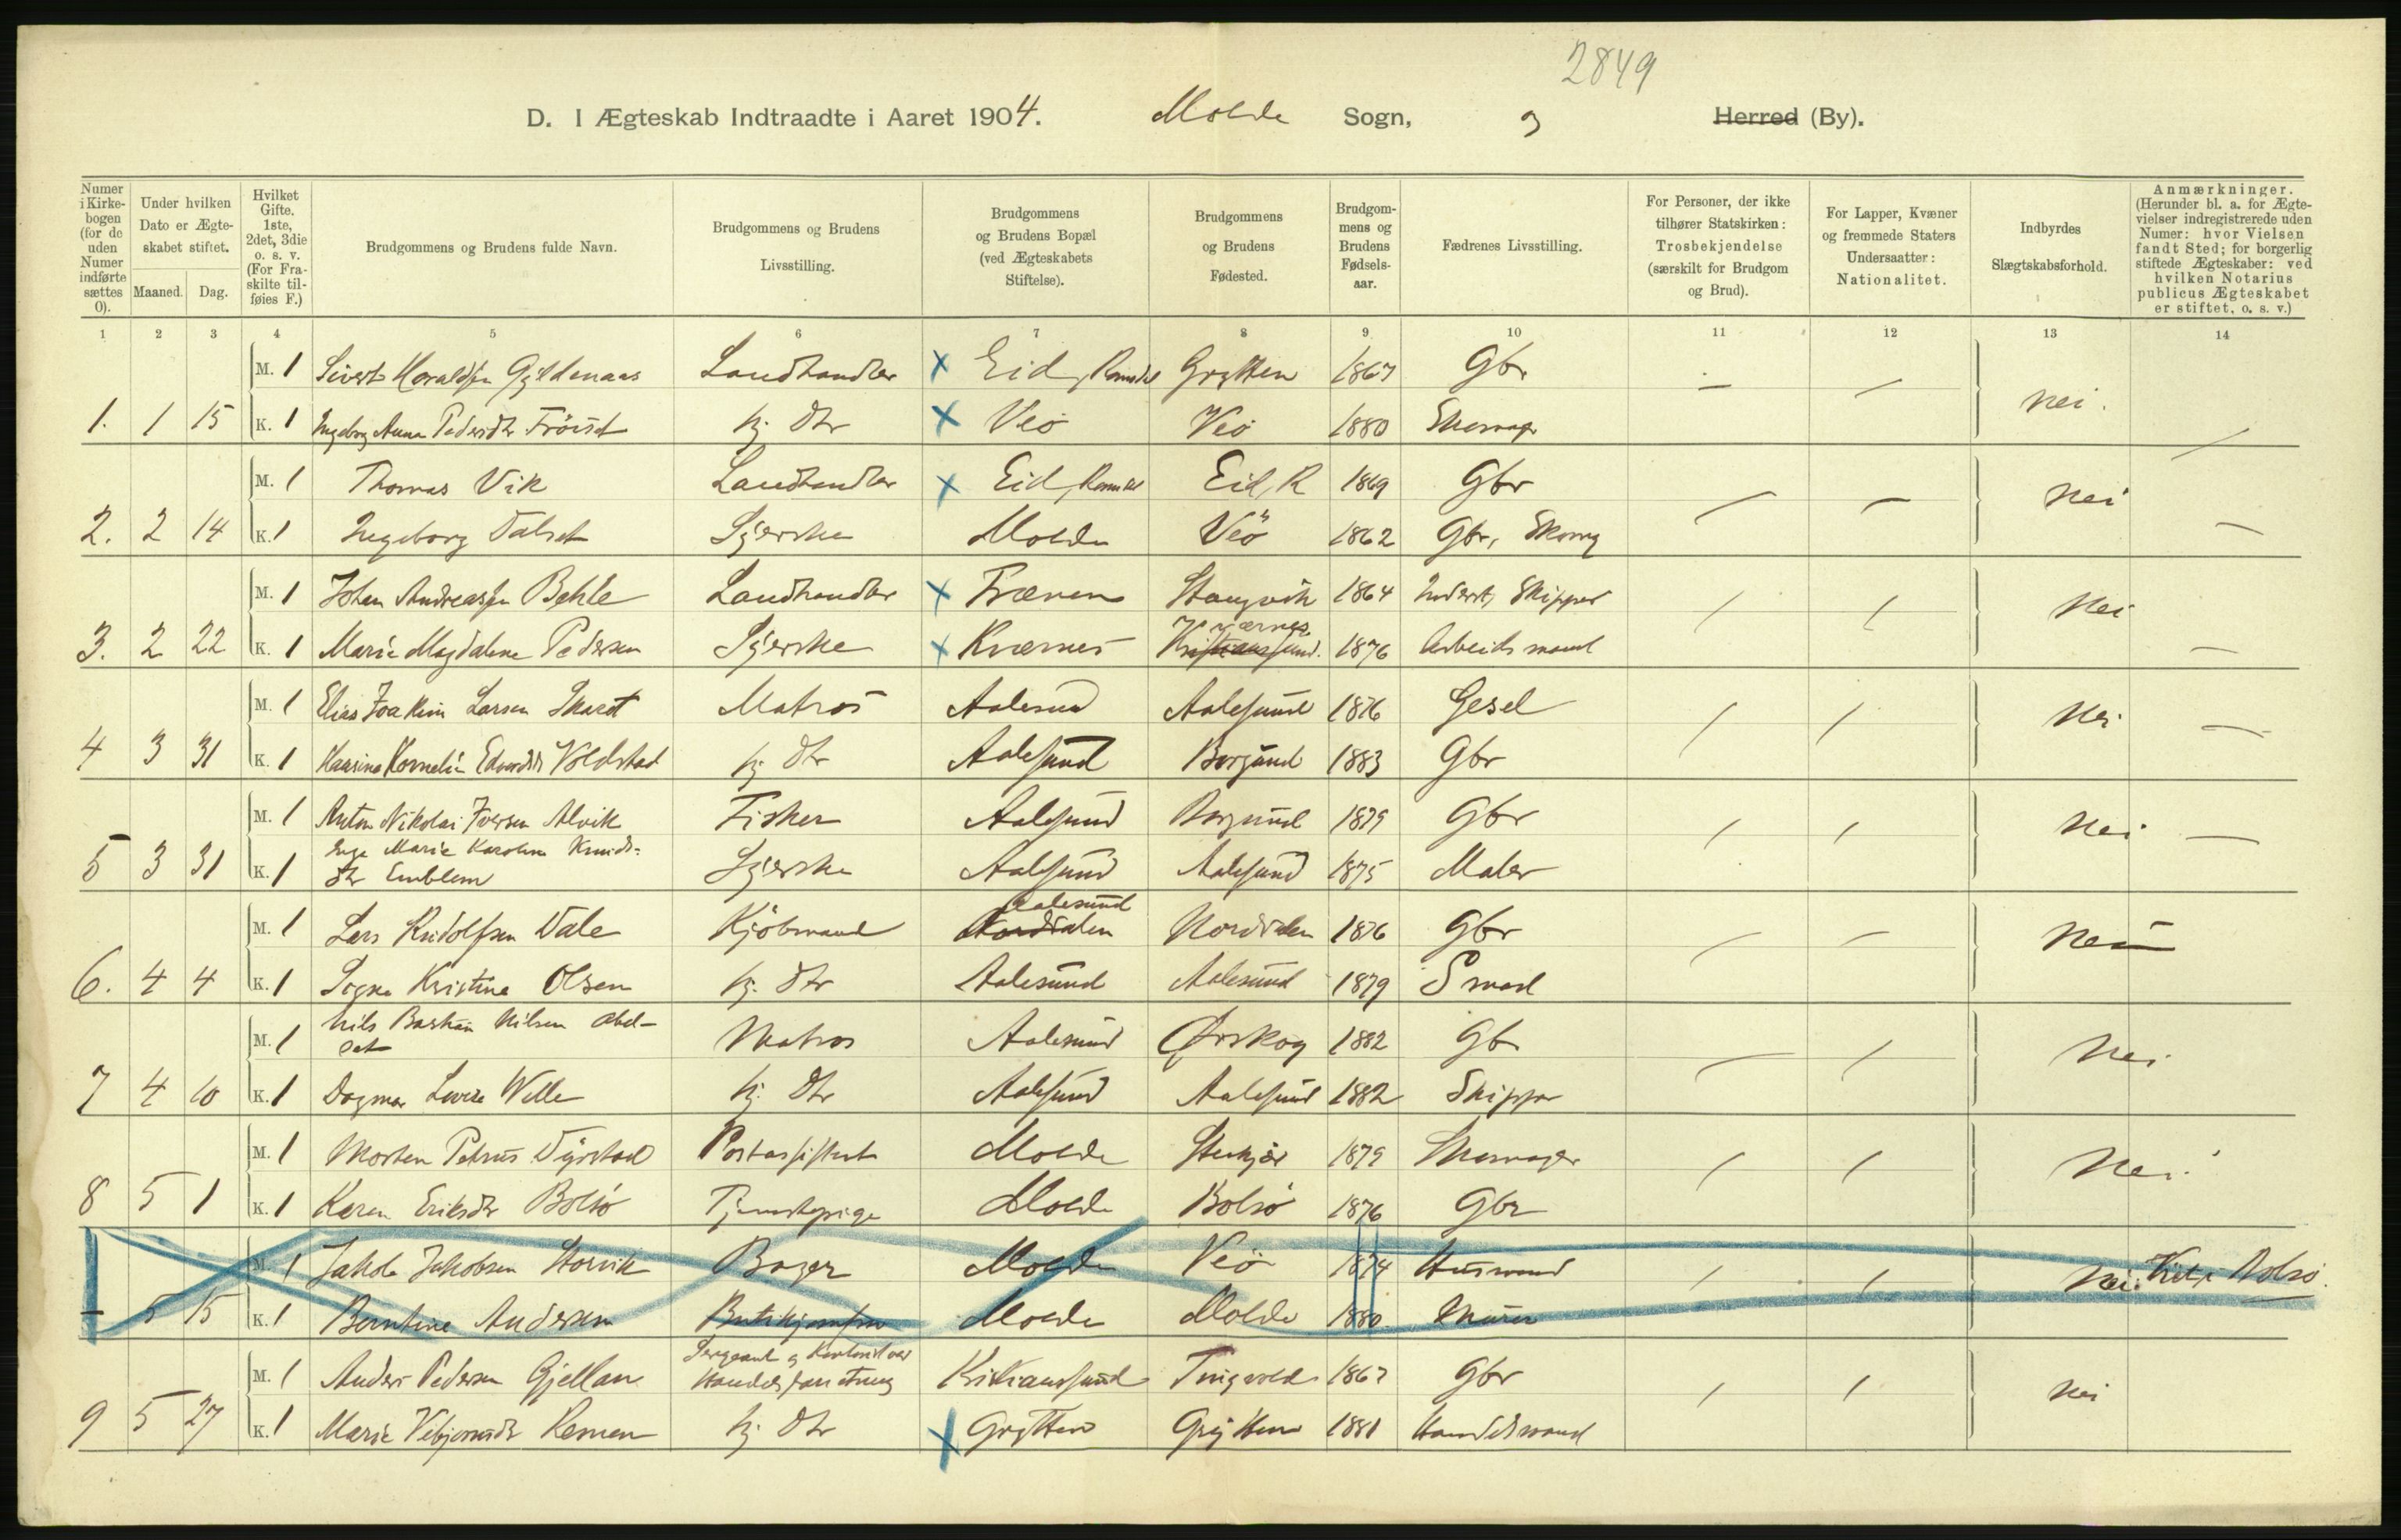 2849
D. I Ægteskab Indtraadte i Aaret 1904. Molde Sogn, Herred (By).
Numer i Kirke-bogen (for de uden Numer indførte sættes 0).
Under hvilken Dato er Ægte-skabet stiftet.
Maaned. Dag.
Hvilket Gifte. 1ste, 2det, 3die o. s. v. (For Fra-skilte til-føies F.)
Brudgommens og Brudens fulde Navn.
Brudgommens og Brudens Livsstilling.
Brudgommens og Brudens Bopæl (ved Ægteskabets Stiftelse).
Brudgommens og Brudens Fødested.
Brudgom-mens og Brudens Fødsels-aar.
Fædrenes Livsstilling.
For Personer, der ikke tilhører Statskirken: Trosbekjendelse (særskilt for Brudgom og Brud).
For Lapper, Kvæner og fremmede Staters Undersaatter: Nationalitet.
Indbyrdes Slægtskabsforhold.
Anmærkninger. (Herunder bl. a. for Ægte-vielser indregistrerede uden Numer: hvor Vielsen fandt Sted; for borgerlig stiftede Ægteskaber: ved hvilken Notarius publicus Ægteskabet er stiftet, o. s. v.)
1 2 3 4 5 6 7 8 9 10 11 12 13 14
M. 1 Sivert Haraldsen Gyldenaas Landhandler x Eid, Romsdal Grytten 1867 Gbr — — nei.
1. 1 15 K. 1 Ingeborg Anna Pedersdtr Fröiset hj. dtr x Veö Veö 1880 Skomager —
M. 1 Thomas Vik Landhandler x Eid, Romsdal Eid, R 1869 Gbr — — nei
2. 2 14 K. 1 Ingeborg Dalset Syerske Molde Veö 1862 Gbr, Skomg —
M. 1 Johan Andreassen Behle Landhandler x Frænen Stangvik 1864 Skipper — — nei
3. 2 22 K. 1 Marie Magdalene Pedersen Syerske x Kværnes Kværnes Kristianssund. 1876 Arbeidsmand —
M. 1 Elias Joakim Larsen Skaret Matros Aalesund Aalesund 1876 Gesel — — nei —
4 3 31 K. 1 Kornelia Edvardsdtr Voldstad hj. dtr Aalesund Borgund 1883 Gbr
M. 1 Anton Nikolai Iversen Alvik Fisker Aalesund Borgund 1879 Gbr — — nei —
5 3 31 K. 1 Inga Marie Karoline Knuds-
dtr Emblem Syerske Aalesund Aalesund 1875 Maler
M. 1 Lars Rudolfsen Dale Kjöbmand Aalesund Norddalen Norddalen 1876 Gbr — — nei —
6. 4 4 K. 1 Signe Kristine Olsen hj. dtr Aalesund Aalesund 1879 Smed
M. 1 Nils Bastian Nilsen Abel-
set Matros Aalesund Ørskog 1882 Gbr — — nei
7 4 10 K. 1 Dagmar Lovise Welle hj. dtr Aalesund Aalesund 1882 Skipper
M. 1 Morten Petrus Dyrstad Postassistent Molde Stenkjær 1879 Skomager — — nei
8 5 1 K. 1 Karen Eriksdtr Bolsö Tjenestepige Molde Bolsö 1876 Gbr
M. 1 Jakob Jakobsen Storvik Bager Molde Veö 1874 Husmand — — nei. Viet i Bolsö.
— 5 15 K. 1 Berntine Andersen Butikjomfru Molde Molde 1880 Murer
M. 1 Anders Pedersen Gjellan Sergeant og
Handelsforretning Kristianssund Tingvold 1867 Gbr — — nei
9 5 27 K. 1 Marie Vebjørnsdtr Remen hj. dtr x Grytten Grytten 1881 Handelsmand